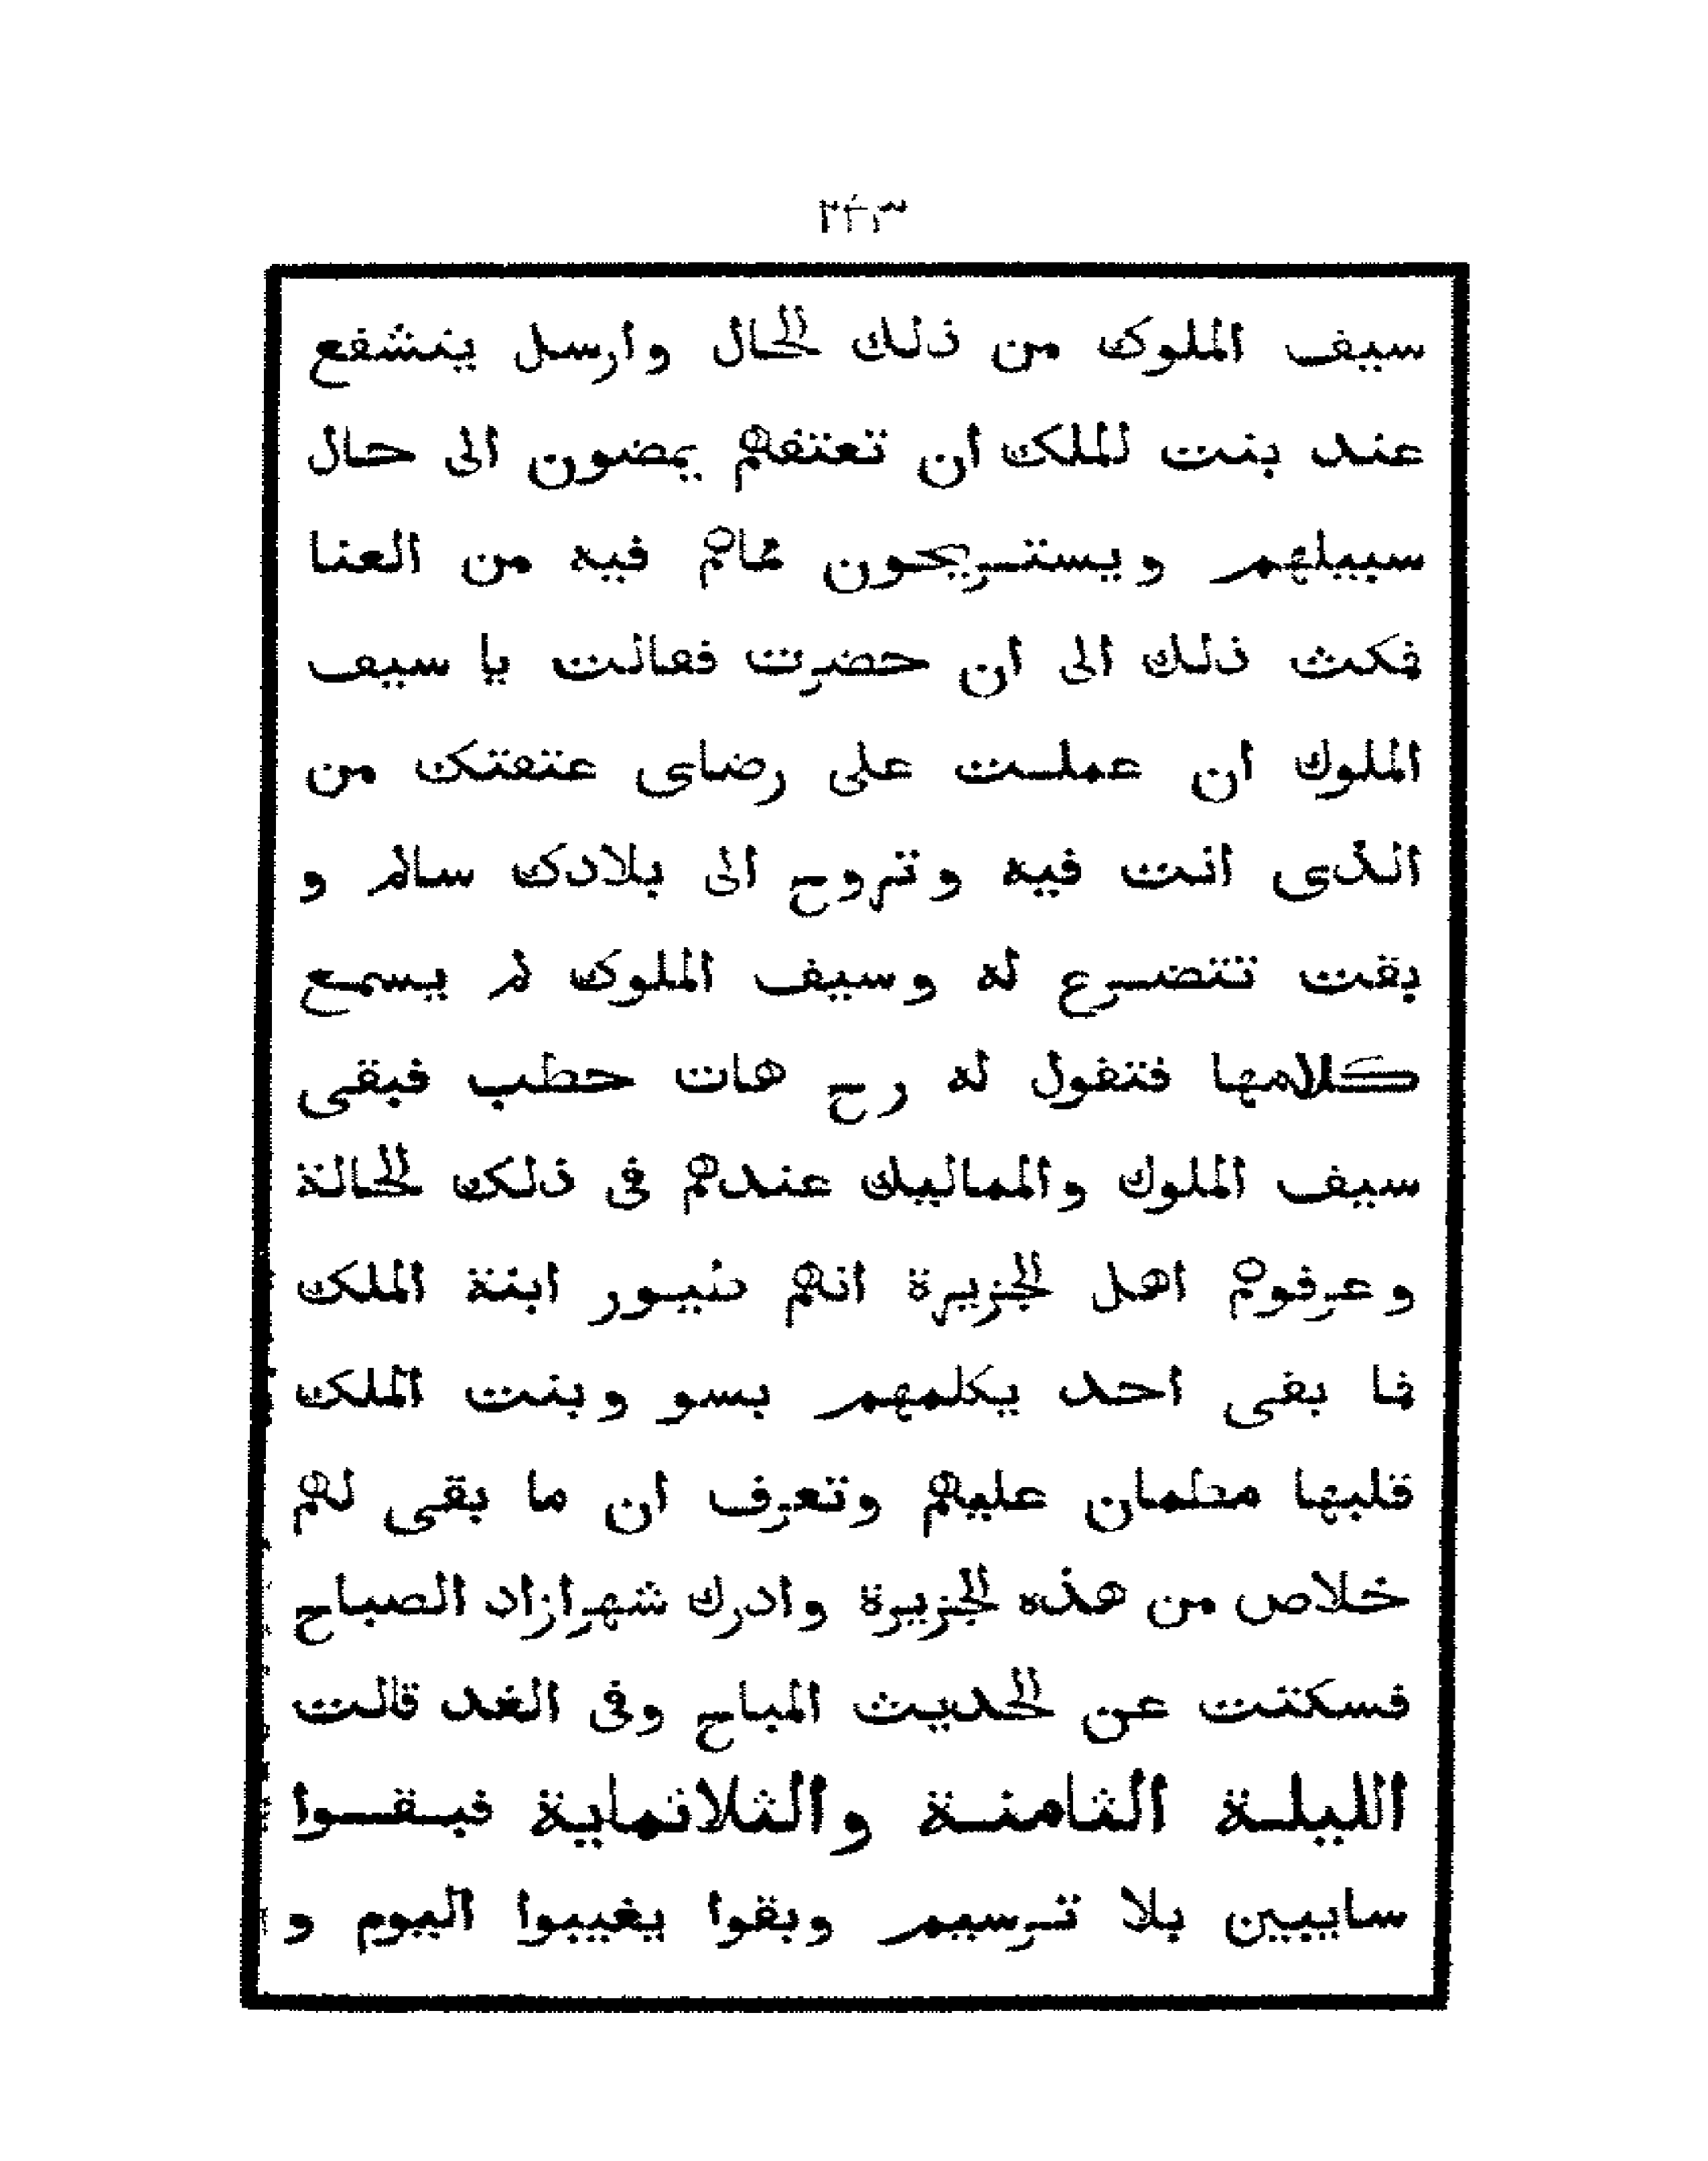 ٢٤٣
سيف الملوك من ذلك الحال وارسل يتشفع
عند بنت الملك ان تعتقهم يمضون الى حال
سبيلهم ويستريحون مما هم فيه من العنا
فكث ذلك الى ان حضرت فقالت يا سيف
الملوك ان عملت على رضاى عتقتك من
الذى انت فيه وتروح الى بلادك سالم و
بقت تتضرع له وسيف الملوك لم يسمع
كلامها فتقول له رح هات حطب فبقى
سيف الملوك والمماليك عندهم فى ذلك الحالة
وعرفوهم اهل الجزيرة انهم طيور ابنة الملك
فما بقى احد يكلمهم بسو وبنت الملك
قلبها مطمان عليهم وتعرف ان ما بقى لهم
خلاص من هذه الجزيرة وادرك شهرازاد الصباح
فسكتت عن الحديث المباح وفى الغد قالت
الليلة الثامنة والثلاثماية فبقوا
سايبين بلا ترسيم وبقوا يغيبوا اليوم و